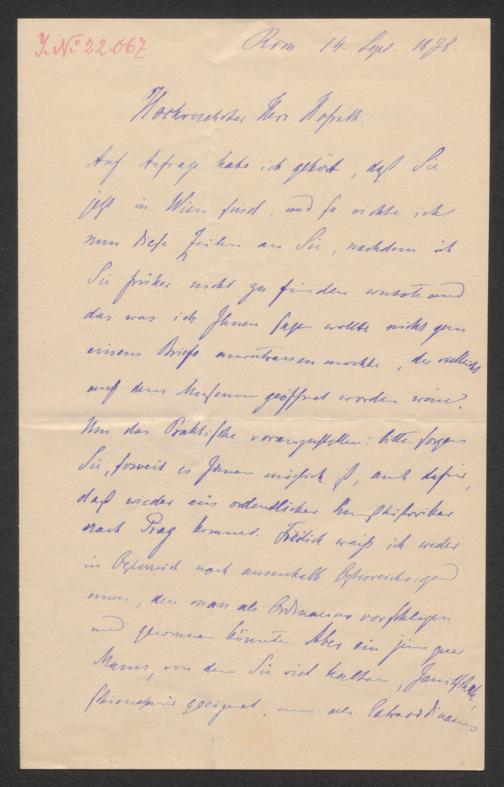 J. № 22.067
Rom 14. Sept. 1878.
Hochverehrter Herr Hofrath.
Auf Anfrage habe ich gehört, daß Sie
jetzt in Wien sind, und so richte ich
nun diese Zeilen an Sie, nachdem ich
Sie früher nicht zu finden wusste und
das was ich Ihnen sagen wollte nicht gern
einem Briefe anvertrauen mochte, der vielleicht
auf dem Museum geöffnet worden wäre.
Um das Praktische voranzustellen: bitte sorgen
Sie, soweit es Ihnen möglich ist, auch dafür,
daß wieder ein ordentlicher Kunsthistoriker
nach Prag kommt. Freilich weiß ich weder
in Österreich noch ausserhalb Österreichs irgend
einen, den man als Ordinarius vorschlagen
und gewinnen könnte. Aber ein jüngerer
Mann, von dem Sie viel halten, Janitschek,
geeignet, um als Extraordinarius